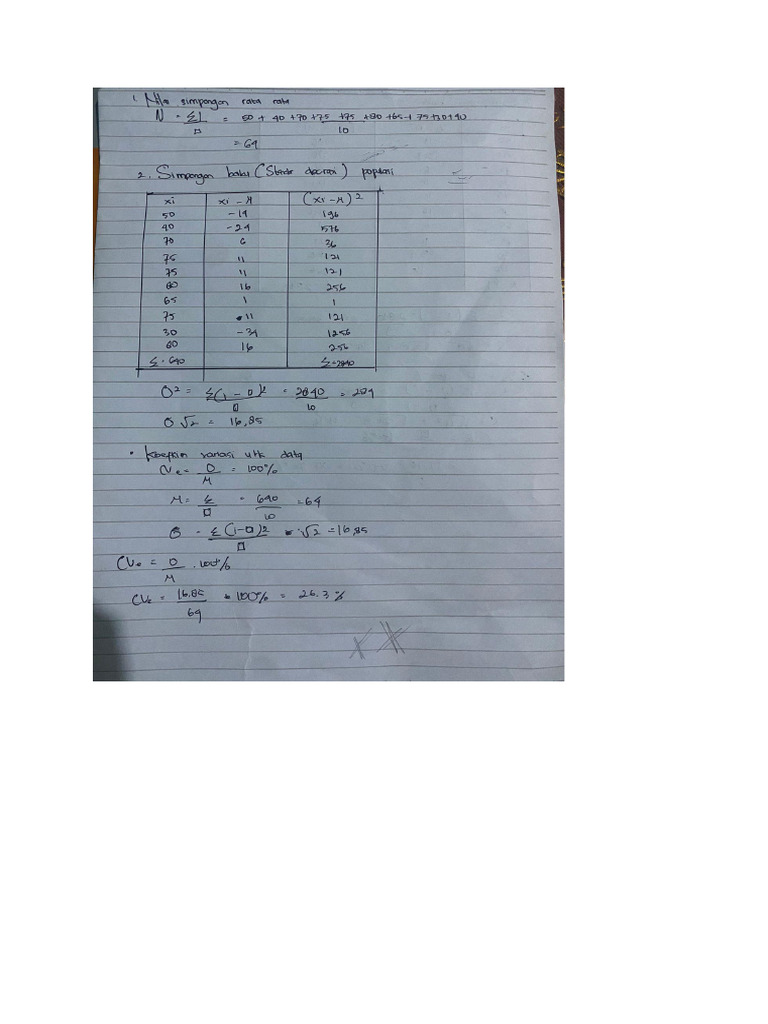 1. Nilai simpangan rata rata
N = Σ1/□ = 50 + 40 +70 +75 +75 +80 +65 + 75+30+40/10
= 64
2. Simpangan baku (Standar deviasi) populasi
xi | xi - M | (xi - M)2
50 | -14 | 196
40 | -24 | 576
70 | 6 | 36
75 | 11 | 121
75 | 11 | 121
80 | 16 | 256
65 | 1 | 1
75 | 11 | 121
30 | -34 | 1256
80 | 16 | 256
Σ = 640 | Σ = 2840
O2 = Σ(1 - 0)2/□ = 2840/10 = 284
O √2 = 16,85
• variasi utk data
= O/M = 100%
M = Σ/□ = 640/10 = 64
O = Σ(1-0)2/□ = √2 = 16,85
CVe = O/M . 100%
CVe = 16.85/64 * 100% = 26.3 %